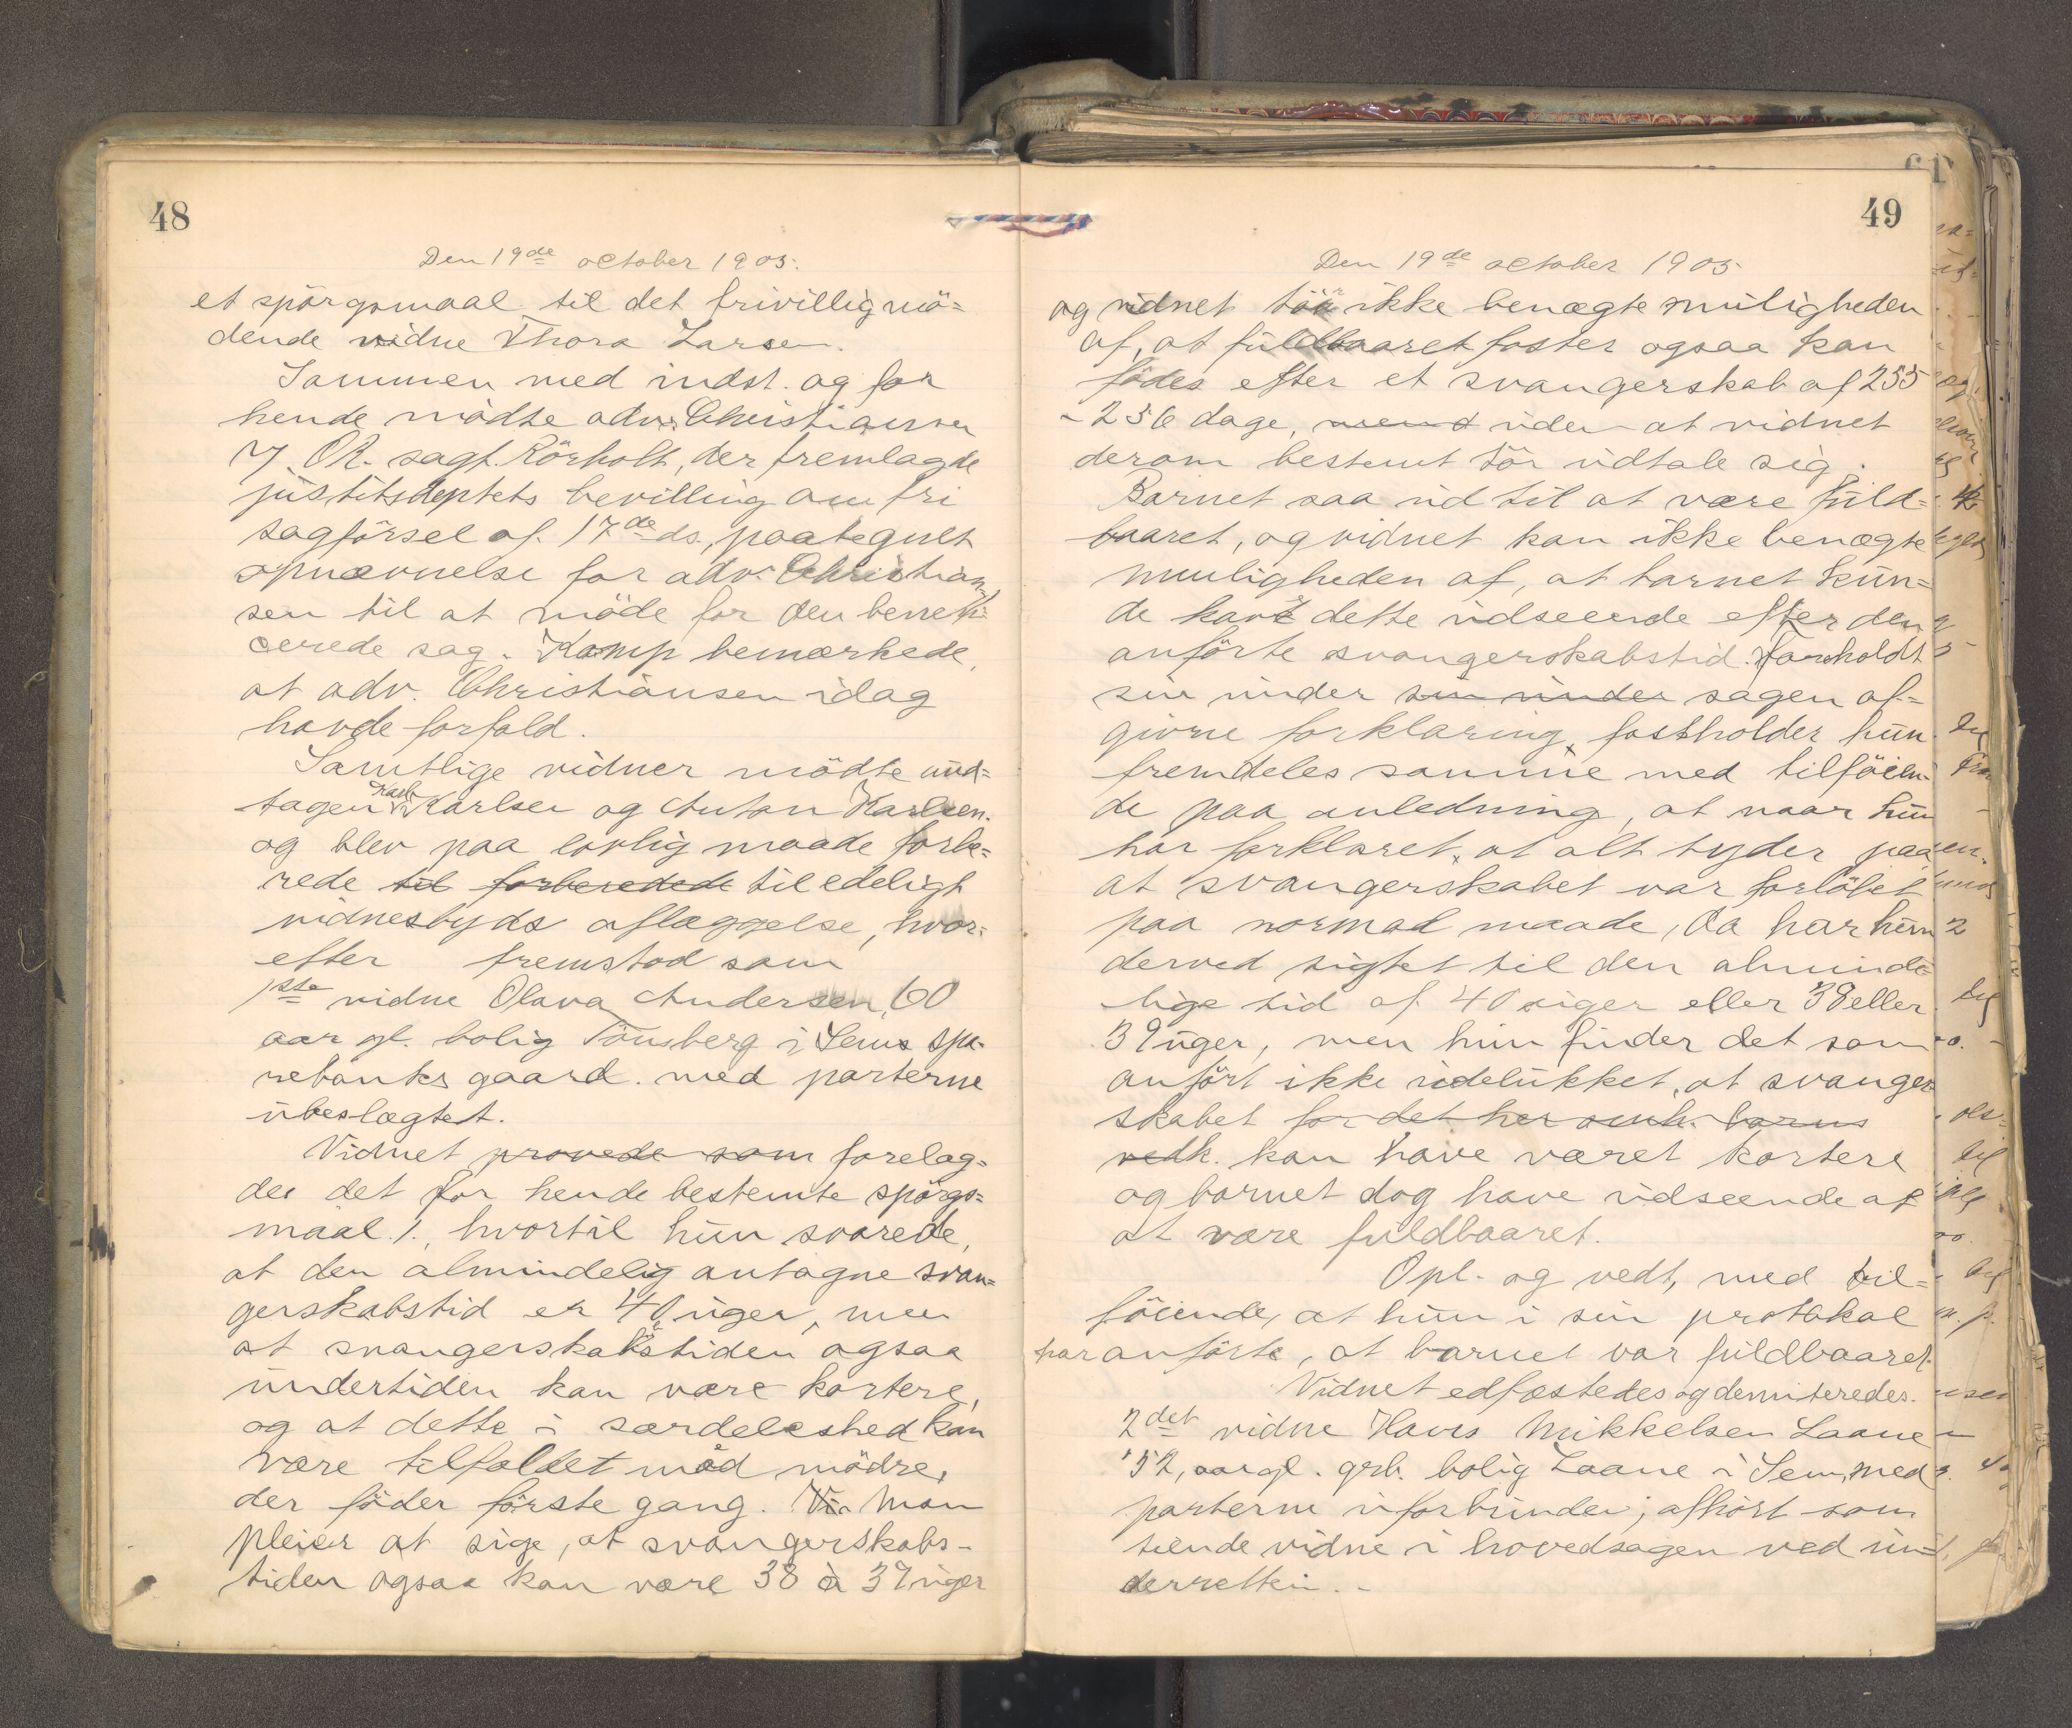 48
Den 19de october 1905.
et spörgsmaal til det frivillig mö=
dende vidne Thora Larsen.
Sammen med indst. og for
hende mödte adv. Christiansen
v/ OR. sagf. Rörholt, der fremlagde
justitsdeptets bevilling om fri
sagförsel af 17de ds., paategnet
opnævnelse for adv. Christian=
sen til at möde for den benefi=
cerede sag. Komp bemærkede,
at adv. Christiansen idag
havde forfald.
Samtlige vidner mödte und=
tagen Karlsen og Anton Karlsen.
og blev paa lovlig maade forbe=
rede til forberedede til edeligt
vidnesbyds aflæggelse, hvor=
efter fremstod som
1ste vidne Olava Andersen, 60
aar gl. bolig Tönsberg i Sems spa=
rebanks gaard. med parterne
ubeslægtet.
Vidnet provede som forelag=
des det for hende bestemte spörgs=
maal 1., hvortil hun svarede,
at den almindelig antagne svan=
gerskabstid er 40 uger, men
at svangerskabstiden ogsaa
undertiden kan være kortere,
og at dette i særdeleshed kan
være tilfældet med mödre,
der föder förste gang. Vi Man
pleier at sige, at svangerskabs=
tiden ogsaa kan være 38 à 39 uger
49
Den 19de october 1905
og vidnet tör ikke benægte muligheden
af, at fuldbaaret foster ogsaa kan
födes efter et svangerskab af 255
- 256 dage, mend uden at vidnet
derom bestemt tör udtale sig.
Barnet saa ud til at være fuld=
baaret, og vidnet kan ikke benægte
muligheden af, at barnet kun=
de havt dette udseende efter den
anförte svangerskabstid. Foreholdt
sin under sin under sagen af=
givne forklaring, fastholder hun
fremdeles samme med tilföien=
de paa anledning, at naar hun
har forklaret, at alt tyder paa
at svangerskabet var forlöbet
paa normal maade, da har hun
derved sigtet til den alminde=
lige tid af 40 uger eller 38 eller
39 uger, men hun finder det som
anfört ikke udelukket, at svanger=
skabet for det her omh. barns
vedk. kan have været kortere
og barnet dog have udseende af
at være fuldbaaret.
Opl. og vedt, med til=
föiende, at hun i sin protokol
har anförte, at barnet var fuldbaaret.
Vidnet edfæstedes og demiteredes.
2det vidne Hans Mikkelsen Laane
52, aar gl. grb. bolig Laane i Sem, med
parterne uforbunden; afhört som
tiende vidne i hovedsagen ved un=
derretten. -